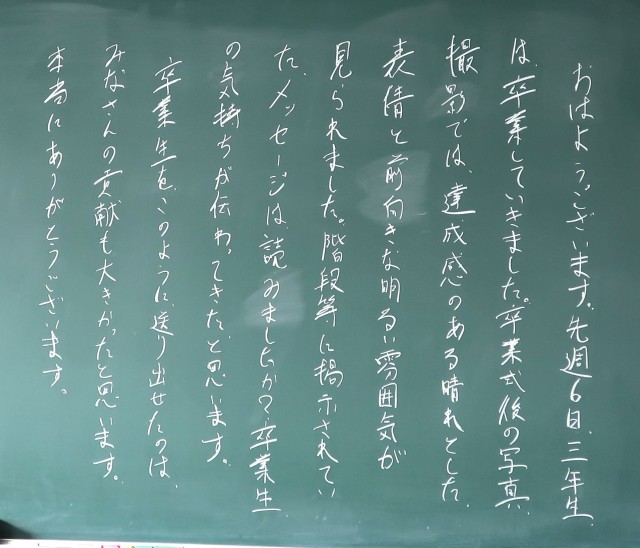 おはようございます。先週6日、三年生
は、卒業していきました。卒業式後の写真
撮影では、達成感のある晴れとした
表情と前向きな明るい雰囲気が
見られました。階段等に掲示されてい
た、メッセージは、読みましたか?卒業生
の気持ちが伝わってきたと思います。
卒業生を、このように、送り出せたのは、
みなさんの貢献も大きかったと思います。
本当にありがとうございます。